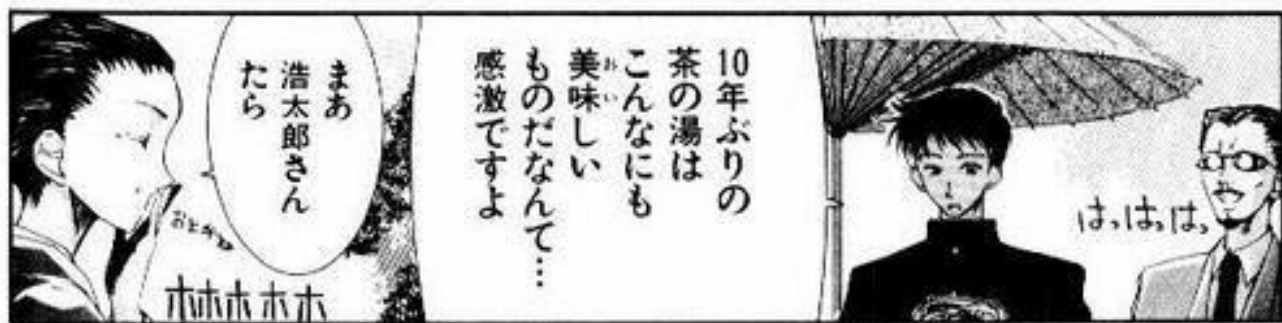 はっはっはっ
10年ぶりの
茶の湯は
こんなにも
美味しい
おい
ものだなんて…
感激ですよ
まあ
浩太郎さん
たら
ホホホホホ